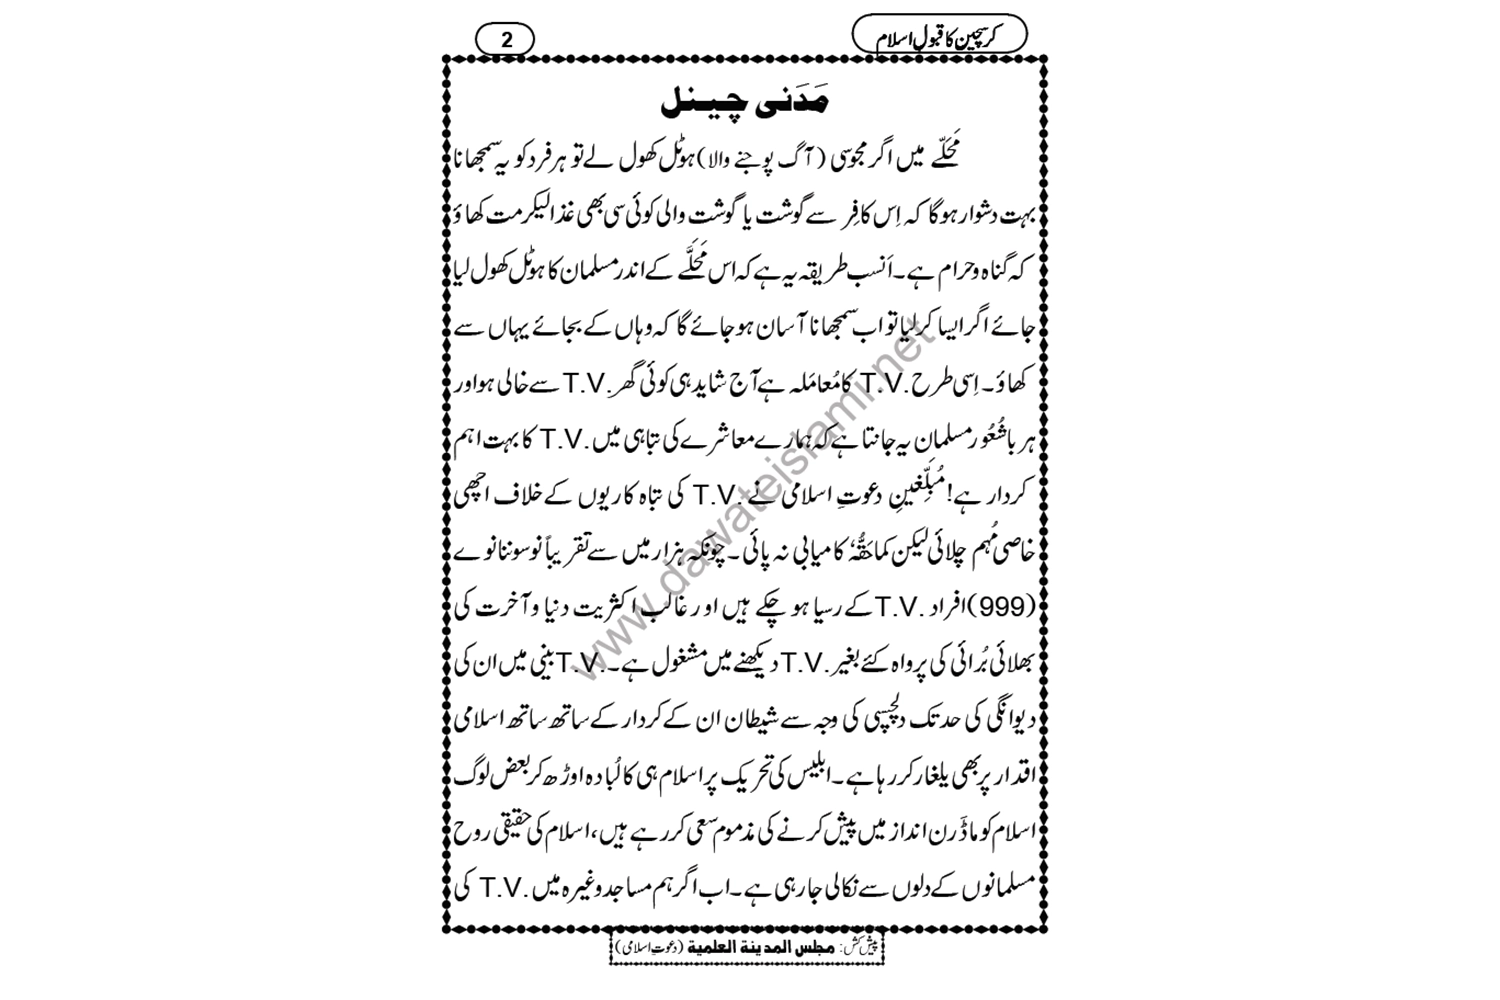 کرسچین کا قبولِ اسلام
2
مَدَنی چینل
مَحَلّے میں اگر مجوسی (آگ پوجنے والا) ہوٹل کھول لے تو ہر فرد کو یہ سمجھانا
بہت دشوار ہوگا کہ اِس کافِر سے گوشت یا گوشت والی کوئی سی بھی غذا لیکر مت کھاؤ
کہ گناہ و حرام ہے۔ اَنسب طریقہ یہ ہے کہ اس مَحَلَّے کے اندر مسلمان کا ہوٹل کھول لیا
جائے اگر ایسا کر لیا تو اب سمجھانا آسان ہو جائے گا کہ وہاں کے بجائے یہاں سے
کھاؤ۔ اِسی طرح .T.V کا مُعامَلہ ہے آج شاید ہی کوئی گھر .T.V سے خالی ہو اور
ہر باشُعُور مسلمان یہ جانتا ہے کہ ہمارے معاشرے کی تباہی میں .T.V کا بہت اہم
کردار ہے! مُبلِّغینِ دعوتِ اسلامی نے .T.V کی تباہ کاریوں کے خلاف اچھی
خاصی مُہم چلائی لیکن کمَا حَقُّہٗ کامیابی نہ پائی۔ چونکہ ہزار میں سے تقریباً نو سو ننانوے
(999) افراد .T.V کے رسیا ہو چکے ہیں اور غالب اکثریت دنیا و آخرت کی
بھلائی بُرائی کی پرواہ کئے بغیر .T.V دیکھنے میں مشغول ہے۔ .T.V بینی میں ان کی
دیوانگی کی حد تک دلچسپی کی وجہ سے شیطان ان کے کردار کے ساتھ ساتھ اسلامی
اقدار پر بھی یلغار کر رہا ہے۔ ابلیس کی تحریک پر اسلام ہی کا لُبادہ اوڑھ کر بعض لوگ
اسلام کو ماڈَرن انداز میں پیش کرنے کی مذموم سعی کر رہے ہیں، اسلام کی حقیقی روح
مسلمانوں کے دلوں سے نکالی جا رہی ہے۔ اب اگر ہم مساجد وغیرہ میں .T.V کی
پیش کش: مجلس المدینۃ العلمیۃ (دعوتِ اسلامی)
www.dawateislami.net